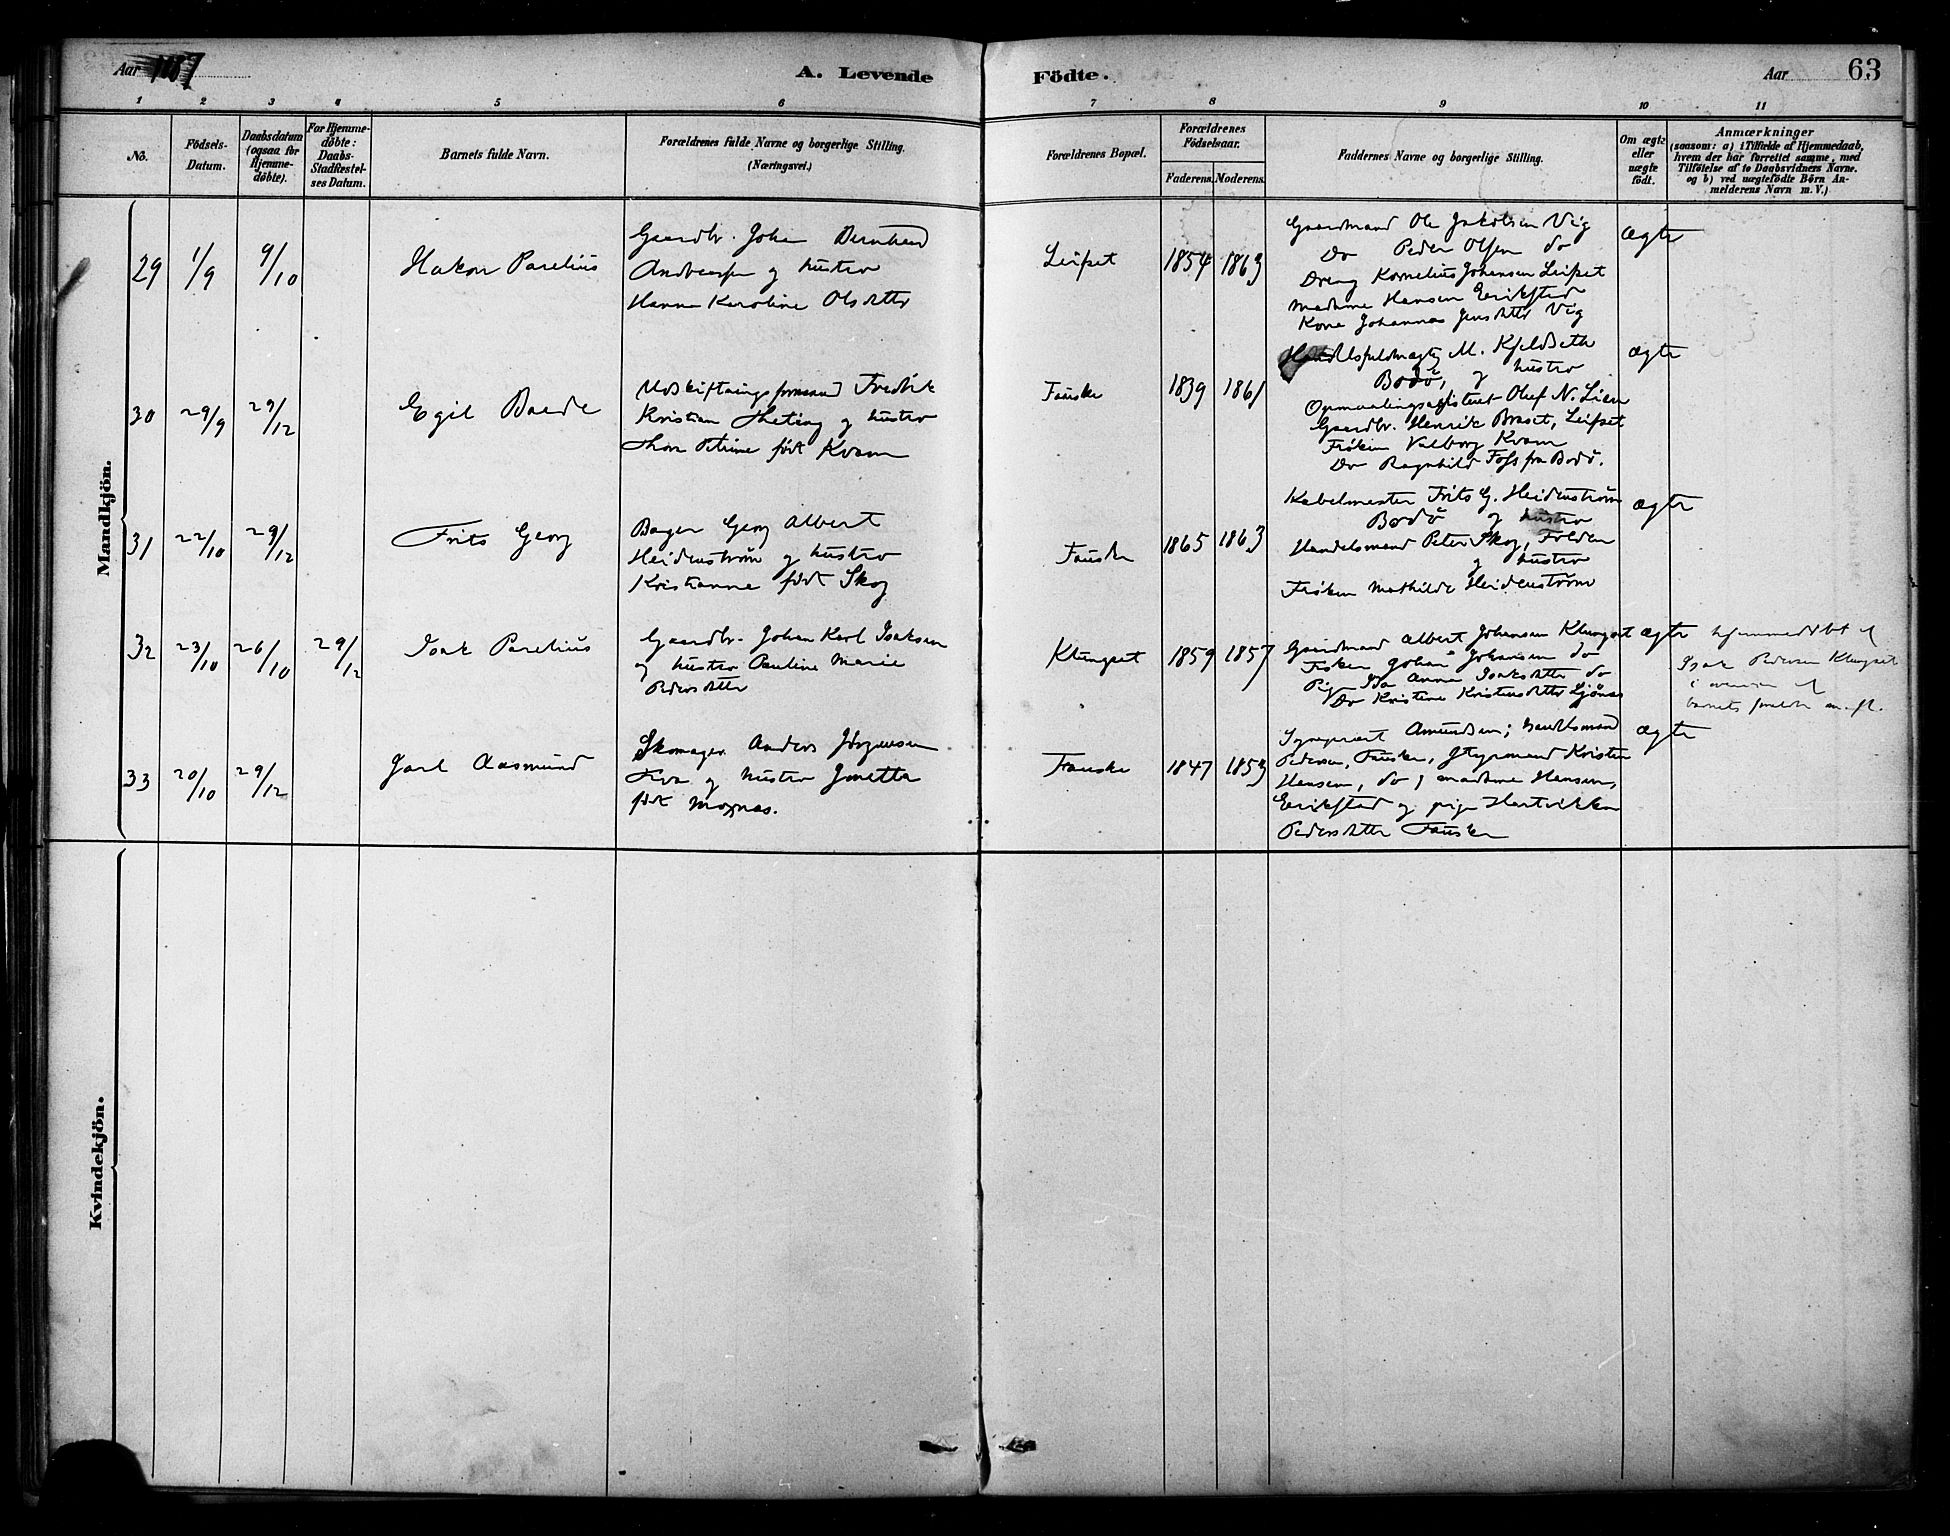 Aar 1887
A. Levende
Födte.
Aar
63
1 2 3 4 5 6 7 8 9 10 11
No.
Födsels-
Datum.
Daabsdatum
(ogsaa for
Hjemme-
døbte).
For Hjemme-
døbte:
Daabs-
Stadfæstel-
ses Datum.
Barnets fulde Navn.
Forældrenes fulde Navne og borgerlige Stilling.
(Næringsvei.)
Forældrenes Bopæl.
Forældrenes
Födselsaar.
Faderens. Moderens.
Faddernes Navne og borgerlige Stilling.
Om ægte
eller
uægte
födt.
Anmærkninger
(saasom: a) i Tilfælde af Hjemmedaab,
hvem der har forrettet samme, med
Tilföielse af to Daabsvidners Navne.
og b) ved uægtefödte Börn An-
melderens Navn m. V.)
Mandkjön.
29
1/9
9/10
Hakon Parelius
Gaardbr. Johan Bernhard
Andreassen og hustro
Hanna Karoline Olsdatter
Leifset
1854
1863
Gaardmand Ole Jakobsen Vig
Do Peder Olsen do
Dreng Kornelius Johansen Leifset
Madame Hansen Erikstad
Kone Johannas Jensdatter Vig
ægte
30
29/9
29/12
Egil Boede
Udskiftningsformand Fredrik
Kristian Theting og hustro
Thora Petrine født Kvam
Fauske
1839
1861
Handelsfuldmægtig M. Kjeldseth
Bodö, og hustro
Opmaalingsassistent Oluf N. Lien
Gaardbr. Henrik Braset, Leifset
Frøken Valborg Kvam
Do Ragnhild Foss fra Bodö.
ægte
31
22/10
29/12
Frits Georg
Bager Georg Albert
Heidenstrøm og hustro
Kristianne født Skog
Fauske
1865
1863
Kabelmester Frits G. Heidenstrøm
Bodö og hustro
Handelsmand Peter Skog, Folden
og hustro
Frøken Mathilde Heidenstrøm
ægte
32
23/10
26/10
29/12
Isak Parelius
Gaardbr. Johan Karl Isaksen
og hustro Pauline Marie
Pedersdatter
Klungset
1859
1857
Gaardmand Albert Johansen Klungset
Fisker Johan Johansen do
Pige Ida Anna Isaksdatter do
Do Kristine Kristensdatter Sjönes
ægte
hjemmedöbt af
Isak Pedersen Klungset
i overvær af
barnets forældre
33
20/10
29/12
Jarl Aasmund
Skomager Anders Jörgensen
og hustro Jonetta
født Moxnas.
Fauske
1847
1853
Amundsen; handelsmand
Pedersen, Fauske, Styrmand Kristen
Hansen, do, madame Hansen,
Erikstad og pige Hartvikka
Pedersdatter Fauske
ægte
Kvindekjön.